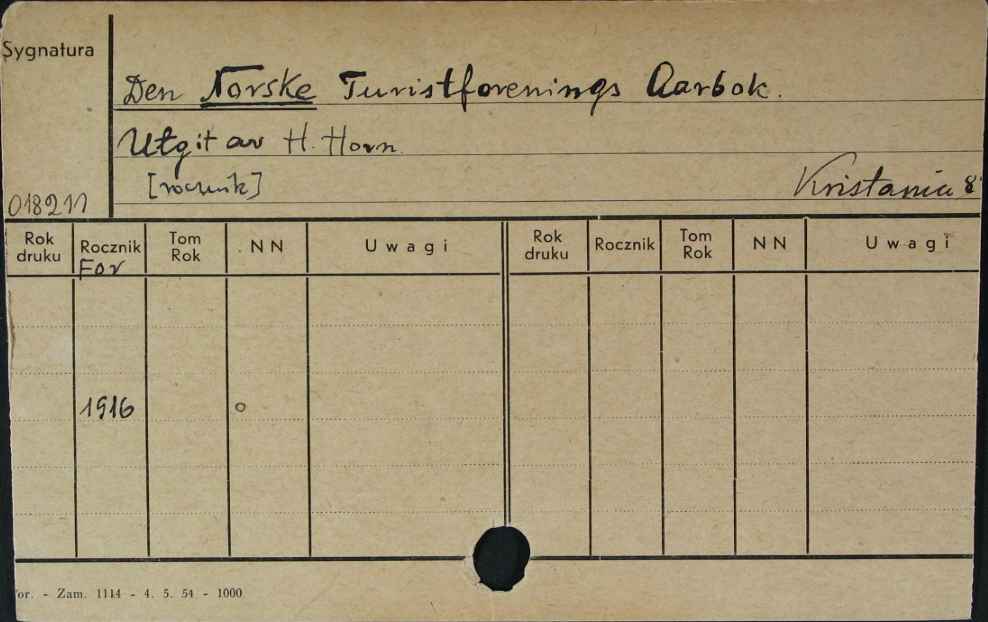 Sygnatura
Den Norske Turistforenings Aarbok.
Utgit av H. Horn
[rocznik] Kristania 8°
018211
Rok druku Rocznik Tom Rok NN Uwagi Rok druku Rocznik Tom Rok NN Uwagi
For
1916 o
or. - Zam. 1114 - 4. 5. 54 - 1000